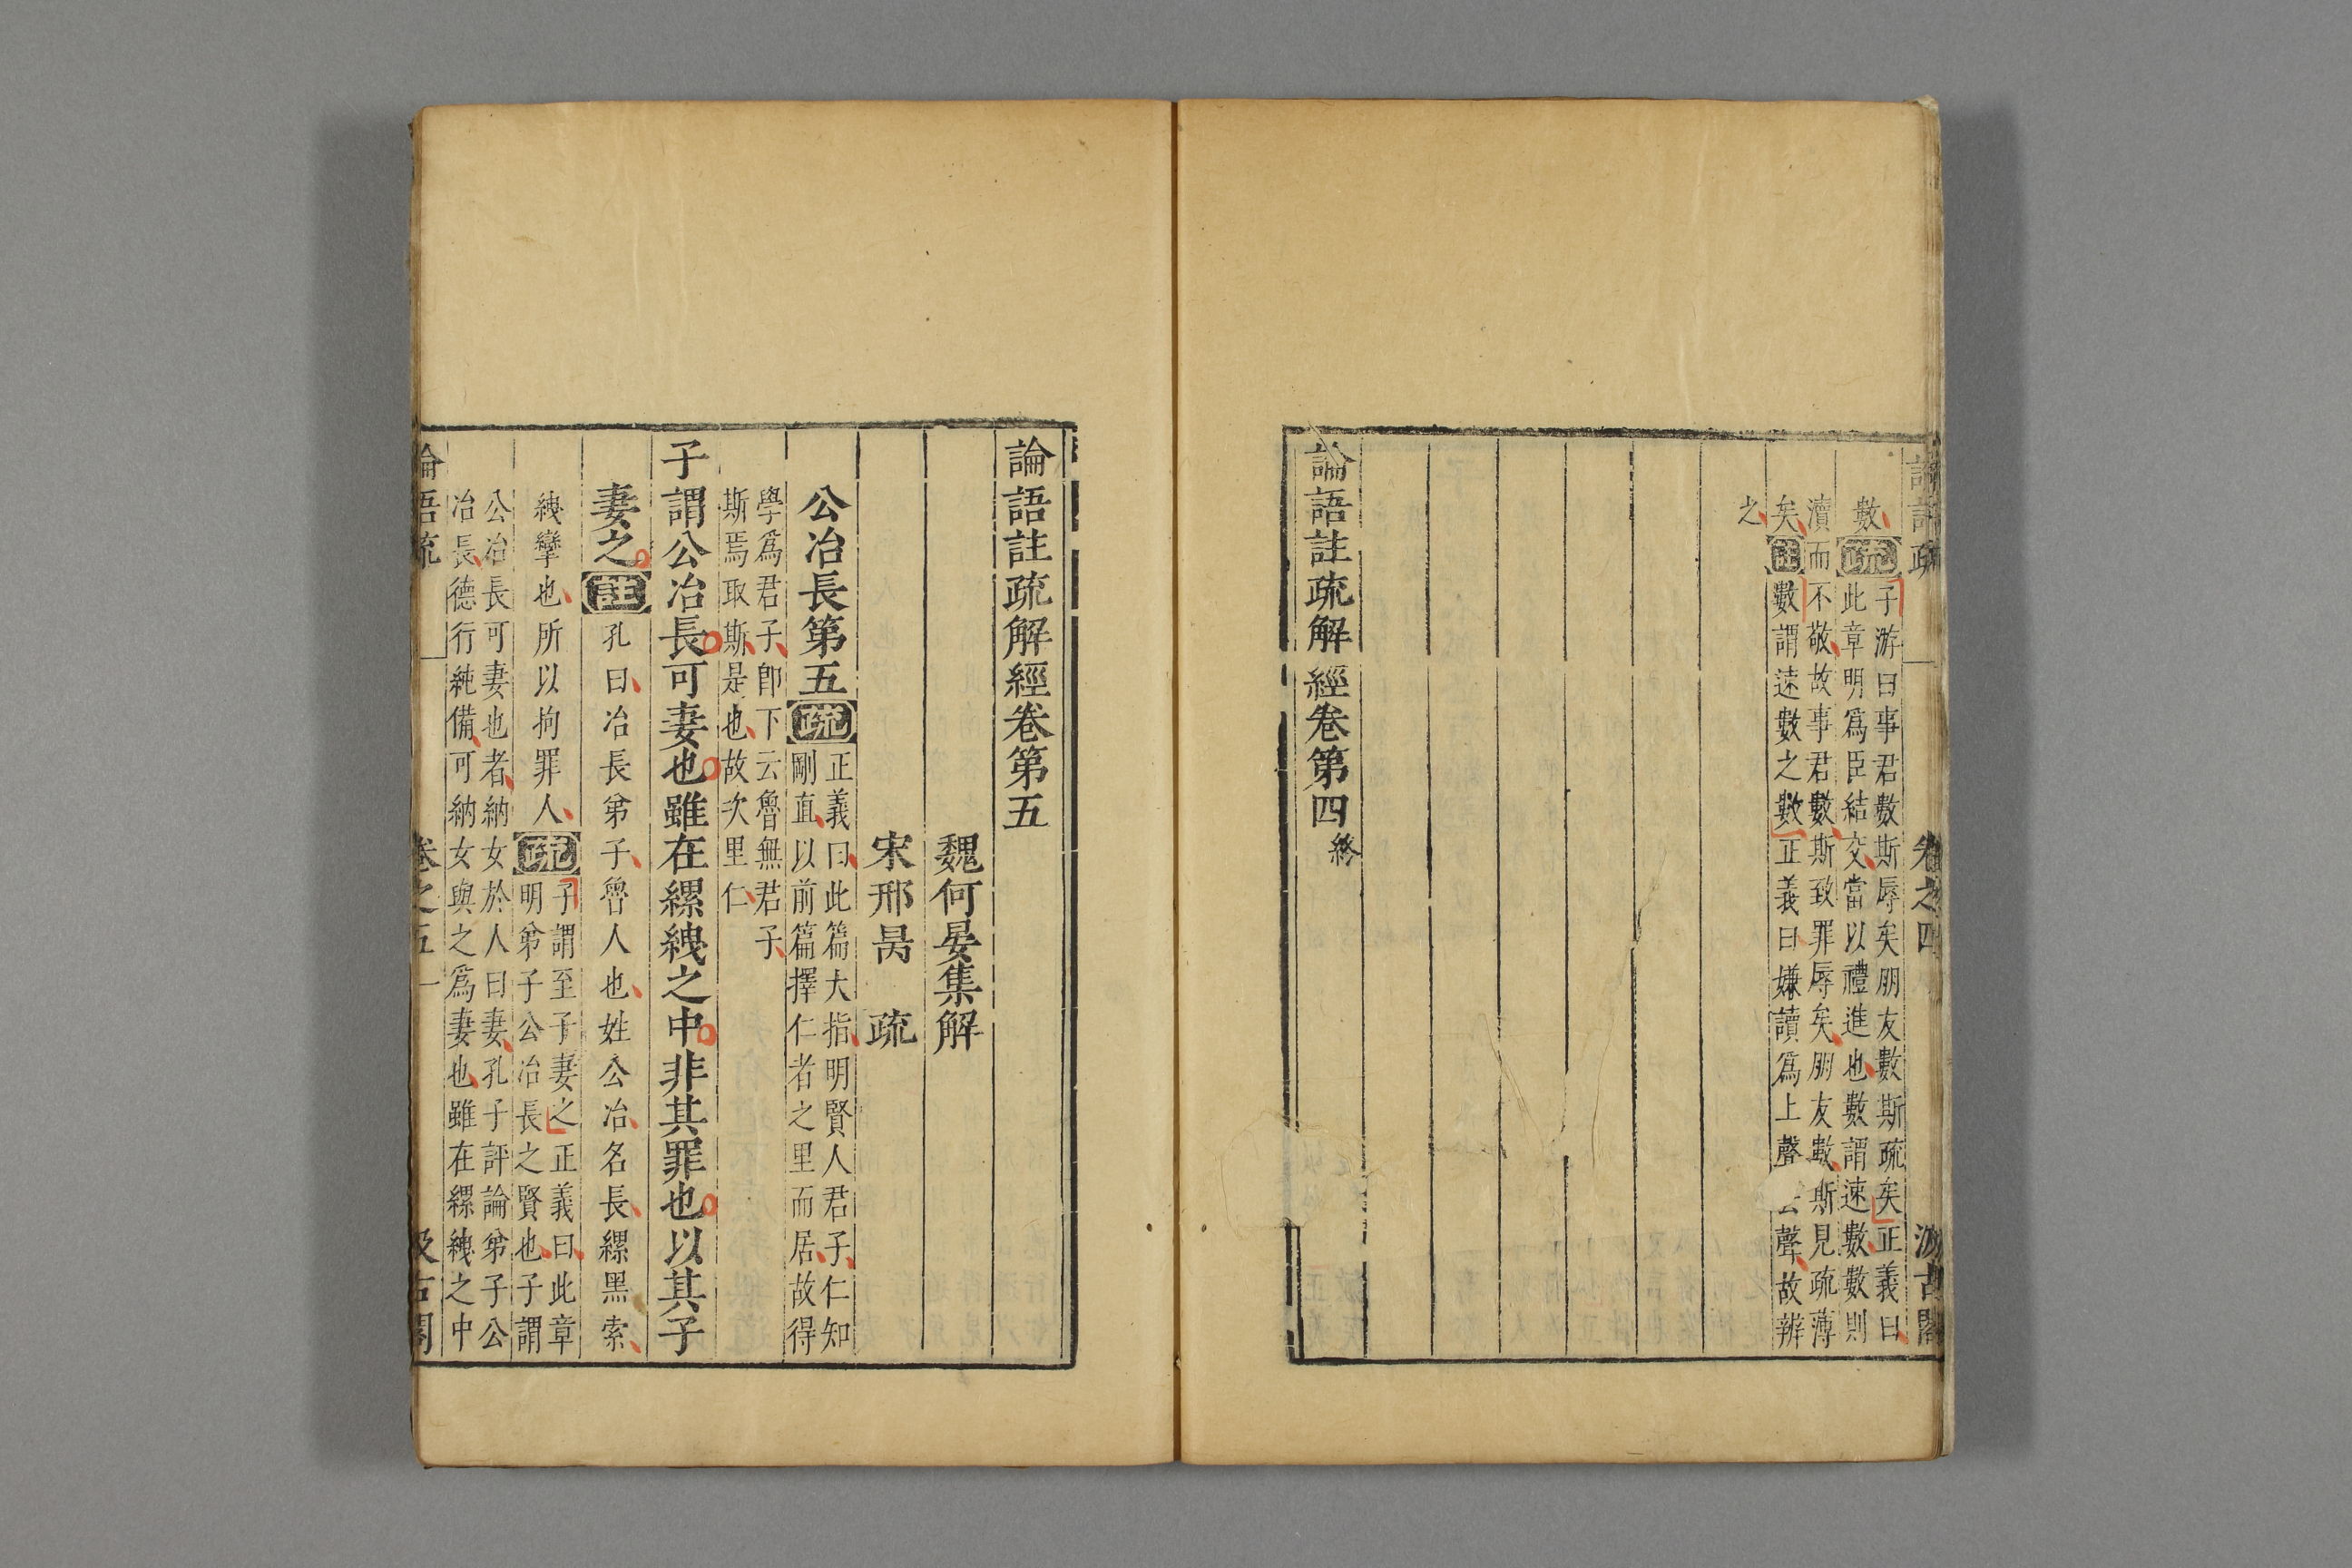 論語註疏
卷之四
汲古閣
數疏子游曰事君數斯辱矣朋友數斯疏矣正義曰
此章明爲臣結交當以禮進也數謂速數數則
瀆而不敬故事君數斯致罪辱矣朋友數斯見疏薄
矣註數謂速數之數正義曰嫌讀爲上聲去聲故辨
之
論語註疏解經卷第四終
論語註疏解經卷第五
魏何晏集解
宋邢昺　疏
公冶長第五疏正義曰此篇大指明賢人君子仁知
剛直以前篇擇仁者之里而居故得
學爲君子卽下云魯無君子
斯焉取斯是也故次里仁
子謂公冶長可妻也雖在縲絏之中非其罪也以其子
妻之註孔曰冶長弟子魯人也姓公冶名長縲黑索
絏攣也所以拘罪人疏子謂至子妻之正義曰此章
明弟子公冶長之賢也子謂
公冶長可妻也者納女於人曰妻孔子評論弟子公
冶長德行純備可納女與之爲妻也雖在縲絏之中
論語疏
卷之五
一
汲古閣